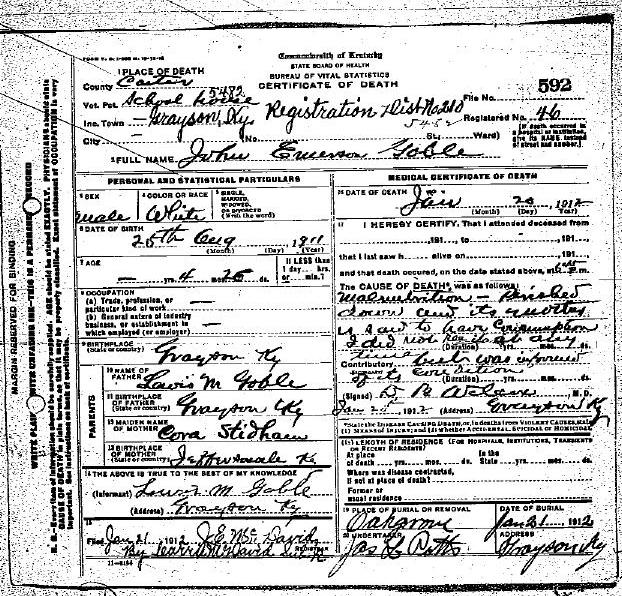 Commonwealth of Kentucky
STATE BOARD OF HEALTH
BUREAU OF VITAL STATISTICS
CERTIFICATE OF DEATH
1 PLACE OF DEATH
County Carter
Vot. Pct. School House 5482
Inc. Town Grayson, Ky.
City No. St., Ward)
Registration Dist No 210
5482
File No. 592
Registered No. 46
(If death occurred in a hospital or institution, give its NAME instead of street and number.)
2 FULL NAME John Emerson Goble
PERSONAL AND STATISTICAL PARTICULARS
3 SEX
male
4 COLOR OR RACE
White
5 SINGLE, MARRIED, WIDOWED, OR DIVORCED (Write the word)
6 DATE OF BIRTH
25th Aug 1911
(Month) (Day) (Year)
7 AGE
— yrs. 4 mos. 25 ds.
If LESS than 1 day... hrs. or min.?
8 OCCUPATION
(a) Trade, profession, or particular kind of work —
(b) General nature of industry business, or establishment in which employed (or employer) —
9 BIRTHPLACE
(State or country) Grayson Ky
PARENTS
10 NAME OF FATHER
Lewis M Goble
11 BIRTHPLACE OF FATHER
(State or country) Grayson Ky
12 MAIDEN NAME OF MOTHER
Cora Stidham
13 BIRTHPLACE OF MOTHER
(State or country)
14 THE ABOVE IS TRUE TO THE BEST OF MY KNOWLEDGE
(Informant) Lewis M Goble
(Address) Grayson Ky
15
Filed Jan 21, 1912 J.E. McDavid
REGISTRAR
11-3184
MEDICAL CERTIFICATE OF DEATH
16 DATE OF DEATH
Jan 20 1912
(Month) (Day) (Year)
17 I HEREBY CERTIFY, That I attended deceased from
191 , to 191
that I last saw h alive on 191
and that death occurred, on the date stated above, at m.
The CAUSE OF DEATH* was as follows:
Malnutrition — Perished
down and its mother
is said to have Consumption
(Duration) yrs. mos. ds.
I did not see it at any
time but was informed
Contributory
of its condition
(Duration) yrs. mos. ds.
(Signed) M.D.
Jan 20, 1912 (Address) Grayson Ky
*State the DISEASE CAUSING DEATH, or, in deaths from VIOLENT CAUSES, state (1) MEANS OF INJURY; and (2) whether ACCIDENTAL, SUICIDAL or HOMICIDAL.
18 LENGTH OF RESIDENCE (FOR HOSPITALS, INSTITUTIONS, TRANSIENTS OR RECENT RESIDENTS)
At place of death yrs. mos. ds. In the State yrs. mos. ds.
Where was disease contracted, if not at place of death?
Former or usual residence
19 PLACE OF BURIAL OR REMOVAL
DATE OF BURIAL
Jan 21 1912
20 UNDERTAKER
ADDRESS
Grayson Ky
MARGIN RESERVED FOR BINDING